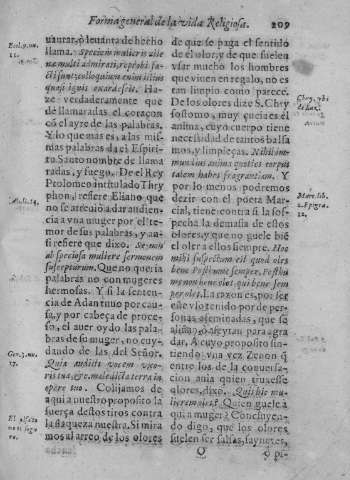 Forma general de la vida Religiosa.
209
Eccl. 9. nu. 11.
uantar, ò leuanta de hecho
llama. Speciem mulieris alie
næ multi admirati, reprobi fa-
cti sunt: colloquium enim illius
quasi ignis exardescit. Ha-
ze verdaderamente que
dè llamaradas el coraçon
cõ el ayre de las palabras.
Y lo que mas es, a las mis-
mas palabras da el Espiri-
tu Santo nombre de llama
radas, y fuego. De el Rey
Ptolomeo intitulado Thry
phon, refiere Eliano que
no se atreuiò a dar audien-
cia a vna muger por el te-
mor de sus palabras, y an-
si refiere que dixo.
al speciosa muliere sermonem
suscepturum. Que no queria
palabras no con mugeres
hermosas. Y si la senten-
cia de Adan tuuo por cau-
sa, y por cabeça de proce-
so, el auer oydo las pala-
bras de su muger, no cuy-
dando de las del Señor.
Gen. 3. nu. 17.
Quia audisti vocem vxo-
ris tuæ, &c. maledicta terra in
opere tuo. Colijamos de
aqui a nuestro proposito la
fuerça destos tiros contra
la flaqueza nuestra. Si mira
mos al arco de los olores
de que se paga el sentido
de el olor, y de que suelen
vsar mucho los hombres
que viuen en regalo, no es
tan limpio como parece.
De los olores dize S. Chry
sostomo, muy çucia es el
anima, cuyo cuerpo tiene
necessidad de tantos balsa
mos, y limpieças. Nihil im-
mundius anima quoties corpus
talem habet fragrantiam. Y
por lo menos podremos
dezir con el poeta Mar-
cial, tiene contra si la sos-
pecha la demasia de estos
olores, y que no huele biẽ
el oler a ellos siempre. Hoc
mihi suspectum est quod oles
bene Postume semper. Posthu
me non bene olet, qui bene sem
per olet. La razon es, por ser
este vso tenido por de per-
sonas afeminadas, que se
aliñan, ò afeytan para agra
dar. A cuyo proposito sin-
tiendo vna vez Zenon q̃
entre los de la conuersa-
cion auia quien truxesse
olores, dixo.
Quien huele a
qui a muger? Concluyen-
do digo, que los olores
suelen ser salsas, saynetes,
O
ò pi-